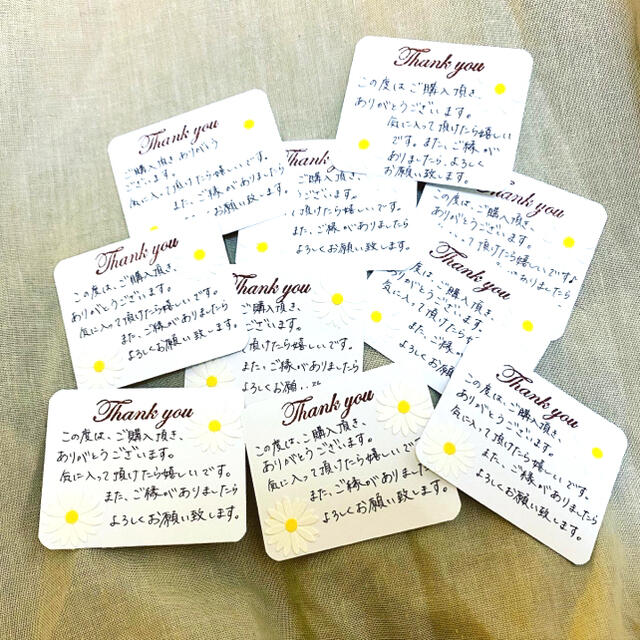 Thank you
この度は、ご購入頂き、
ありがとうございます。
気に入って頂けたら嬉しい
です。また、ご縁が
ありましたら、よろしく
お願い致します。
Thank you
ご購入頂き ありがとう
ございます。
気に入って頂けたら嬉しいです。
また、ご縁がありましたら
お願い致します。
Tha
ご購入頂き、
うございます。
て頂けたら嬉しいです。
また、ご縁がありましたら
よろしくお願い致します。
Thank you
この度は、ご購入頂き、
ありがとうございます。
って頂けたら嬉しいです♪
ありましたら
Thank you
この度は、ご購入頂き、
ありがとうございます。
気に入って頂けたら嬉しいです。
また、ご縁がありましたら
よろしくお願い致します。
Thank you
ご購入頂き、
ございます。
て頂けたら嬉しいです。
また、ご縁がありましたら
よろしくお願
Thank you
度は、ご購入頂き、
ありがとうございます。
気に入って頂けたら
また、ご縁が
よろしくお
Thank you
この度は、ご購入頂き、
ありがとうございます。
気に入って頂けたら嬉しいです。
また、ご縁がありましたら
よろしくお願い致します。
Thank you
この度は、ご購入頂き、
ありがとうございます。
気に入って頂けたら嬉しいです。
また、ご縁がありましたら
よろしくお願い致します。
Thank you
この度は、ご購入頂き、
ありがとうございます。
気に入って頂けたら嬉しいです。
また、ご縁がありましたら
よろしくお願い致します。